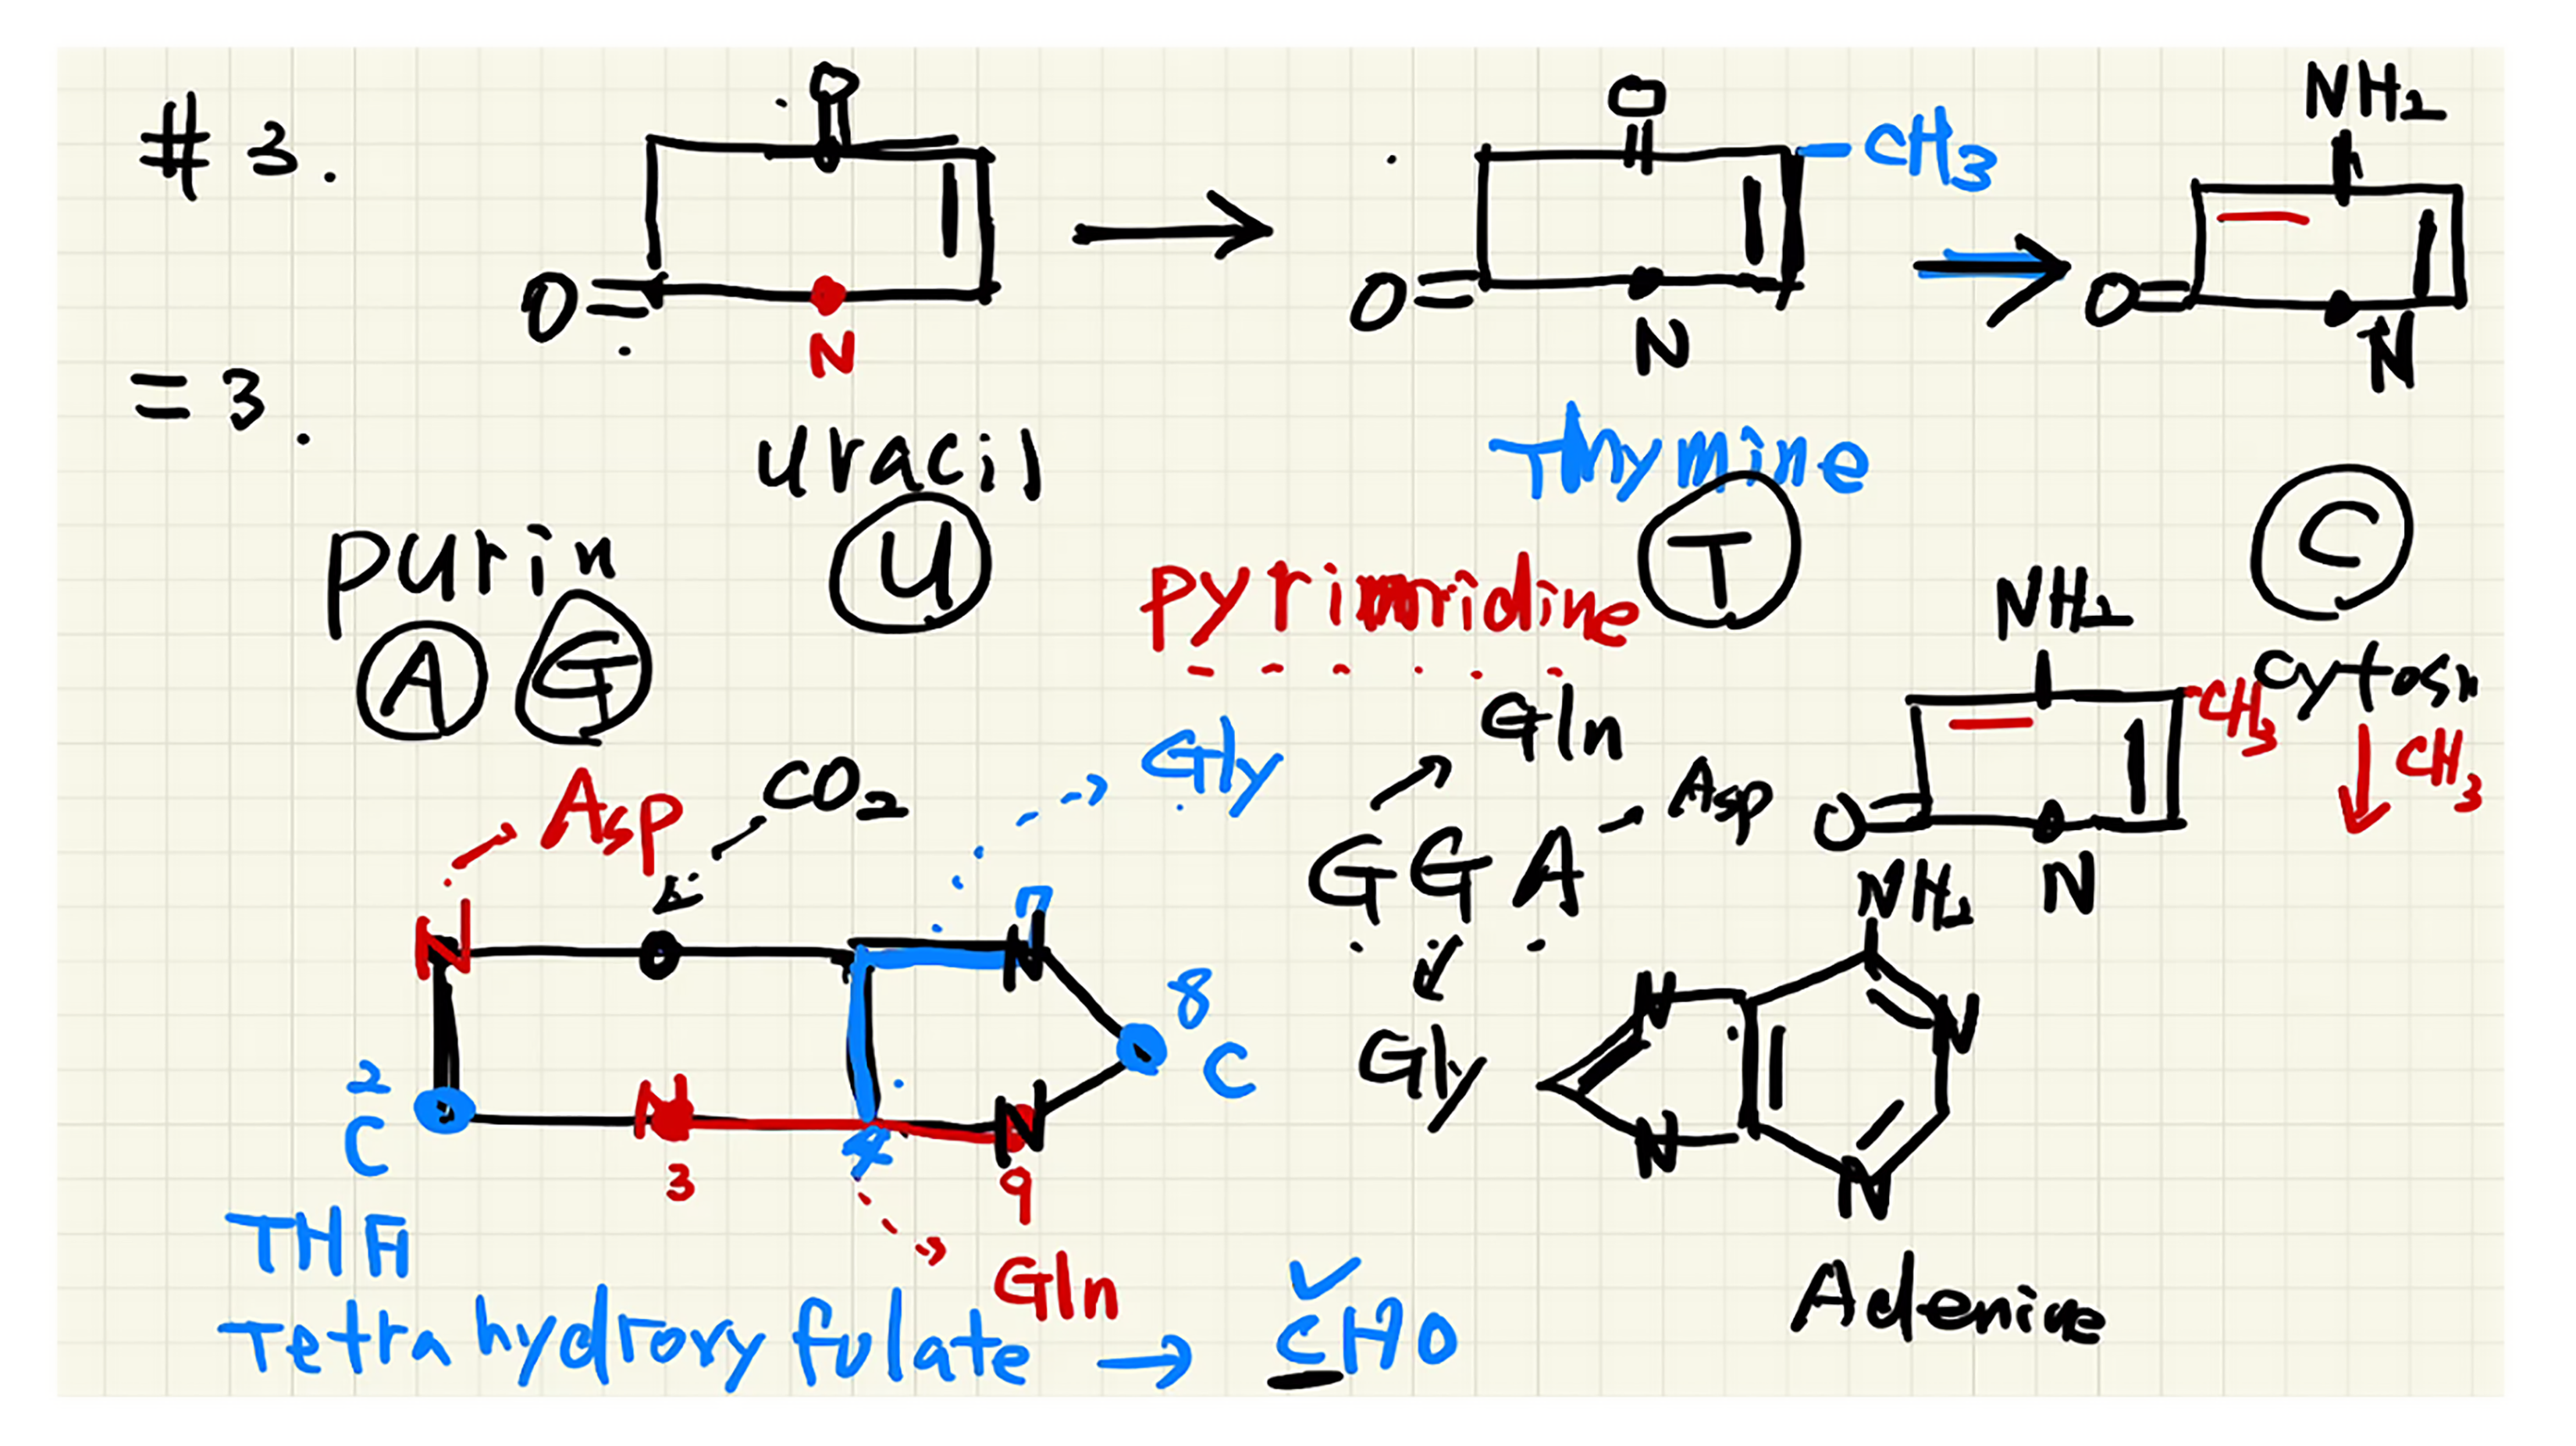 # 3.
O
O=
N
uracil
U
O
CH3
O=
N
Thymine
T
NH2
O=
N
C
cytosn
CH3
= 3.
purin
A G
pyrimridine
Asp
CO2
Gly
N
7
N
8
C
2
C
N
3
4
N
9
Gln
THF
Tetrahydroxy fulate → CHO
Gln
G G A
Asp
Gly
NH2
CH3
O
N
NH2
N
N
N
N
Adenine